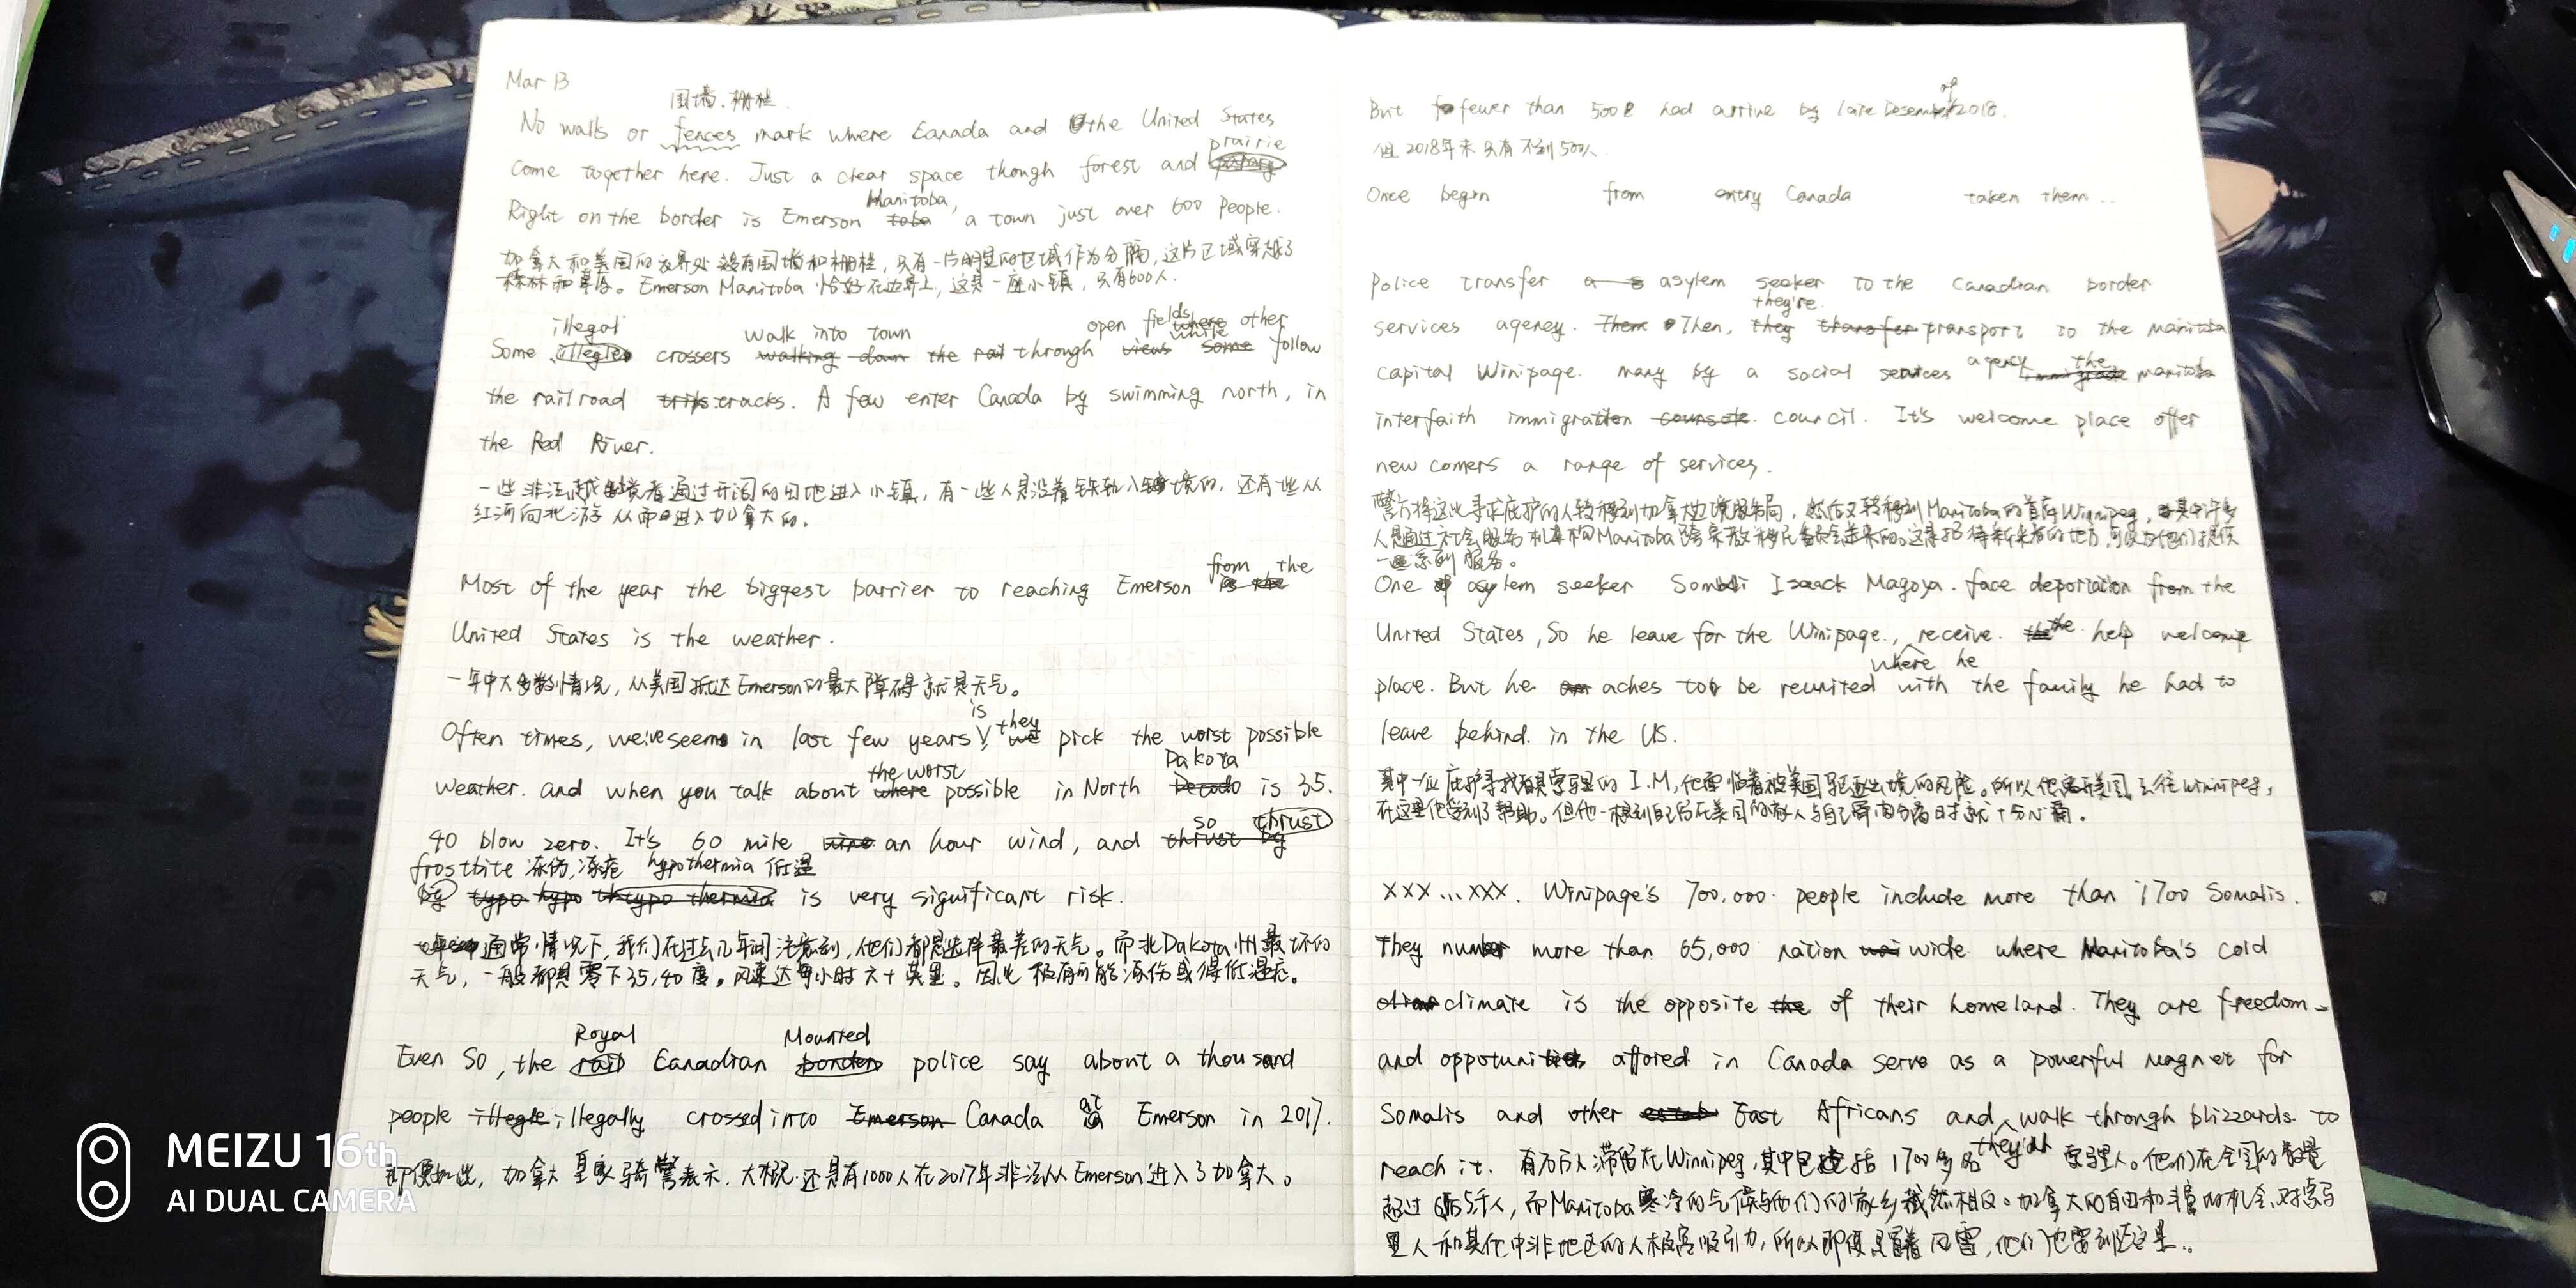 Mar 13
围墙、栅栏
No walls or fences mark where Canada and the United States
prairie
come together here. Just a clear space though forest and
Manitoba,
Right on the border is Emerson toba a town just over 600 People.
加拿大和美国的交界处没有围墙和栅栏,只有一片明显的区域作为分隔,这片区域穿越了
森林和草原。Emerson Manitoba 恰好在边界上,这是一座小镇,只有600人.
illegal walk into town open fields where other
while
Some illegle crossers walking down the rail through views some follow
the railroad trips tracks. A few enter Canada by swimming north, in
the Red River.
一些非法越境者通过开阔的田地进入小镇,有一些人是沿着铁轨入境的,还有些从
红河向北游从而进入加拿大的.
from the
Most of the year the biggest barrier to reaching Emerson is the
United States is the weather.
一年中大多数情况,从美国抵达Emerson的最大障碍就是天气。
is they
Often times, we've seems in last few years, we pick the worst possible
the worst Dakota
weather. and when you talk about where possible in North is 35.
so thrust
40 blow zero. It's 60 mile wine an hour wind, and thrust by
frostbite 冻伤,冻疮 hypothermia 低温
by typo hypo thermia is very significant risk.
通常情况下,我们在过去几年间注意到,他们都是选择最差的天气。而北Dakota州最坏的
天气,一般都是零下35,40度。风速达每小时六十英里。因此极有可能冻伤或得低温症。
Royal Mounted
Even So, the rail Canadian border police say about a thousand
at
people illegle illegally crossed into Emerson Canada Emerson in 2017.
即便如此,加拿大皇家骑警表示,大概还是有1000人在2017年非法从Emerson进入了加拿大。
of
But fewer than 500 had arrive by late Desember 2018.
但2018年末只有不到500人
Once begin from entry Canada taken them..
Police transfer a s asylem seeker to the Canadian border
they're
services agency. Them Then, they transfer transport to the manitoba
agency the
capital Winipage. many by a social services immigrade manitoba
interfaith immigration counsole council. It's welcome place offer
new comers a range of services.
警方将这些寻求庇护的人转移到加拿大边境服务局,然后又转移到Manitoba的首府Winnipeg,其中许多
人是通过社会服务机构Manitoba跨宗教移民委员会进来的。这是招待新来者的地方,可以为他们提供
一系列服务。
One of asylem seeker Somali Isaack Magoya. face deportation from the
United States, So he leave for the Winipage., receive. the help welcome
where he
place. But he am aches to be reunited with the family he had to
leave behind. in the US.
其中一位庇护寻找者是索马里的I.M,他面临着被美国驱逐出境的风险。所以他离开美国去往Winnipeg,
在这里他受到了帮助。但他一想到自己留在美国的家人与自己分离时就十分心痛.
XXX...XXX. Winipage's 700,000 people include more than 1700 Somalis.
They number more than 65,000 nation wide. where Manitoba's cold
climate is the opposite the of their homeland. They are freedom
and oppotunities affored in Canada serve as a powerful magnet for
Somalis and other East Africans and walk through blizzards. to
they'll
reach it. 有70万人滞留在Winnipeg,其中包括1700多名索马里人。他们在全国的数量
超过6万5千人,而Manitoba寒冷的气候与他们的家乡截然相反。加拿大的自由和丰富的机会,对索马
里人和其他中非地区的人极富吸引力,所以即便是冒着风雪,他们也要到达这里..
MEIZU 16th
AI DUAL CAMERA